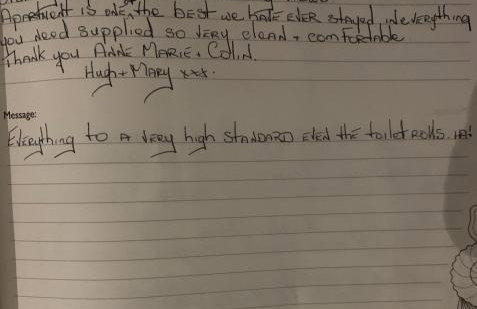 Apartment is one of the best we have ever stayed in everything
you need supplied so very clean + comfortable
Thank you Anne Marie + Colin.
Hugh + Mary xxx.
Message:
Everything to a very high standard even the toilet rolls. HA!